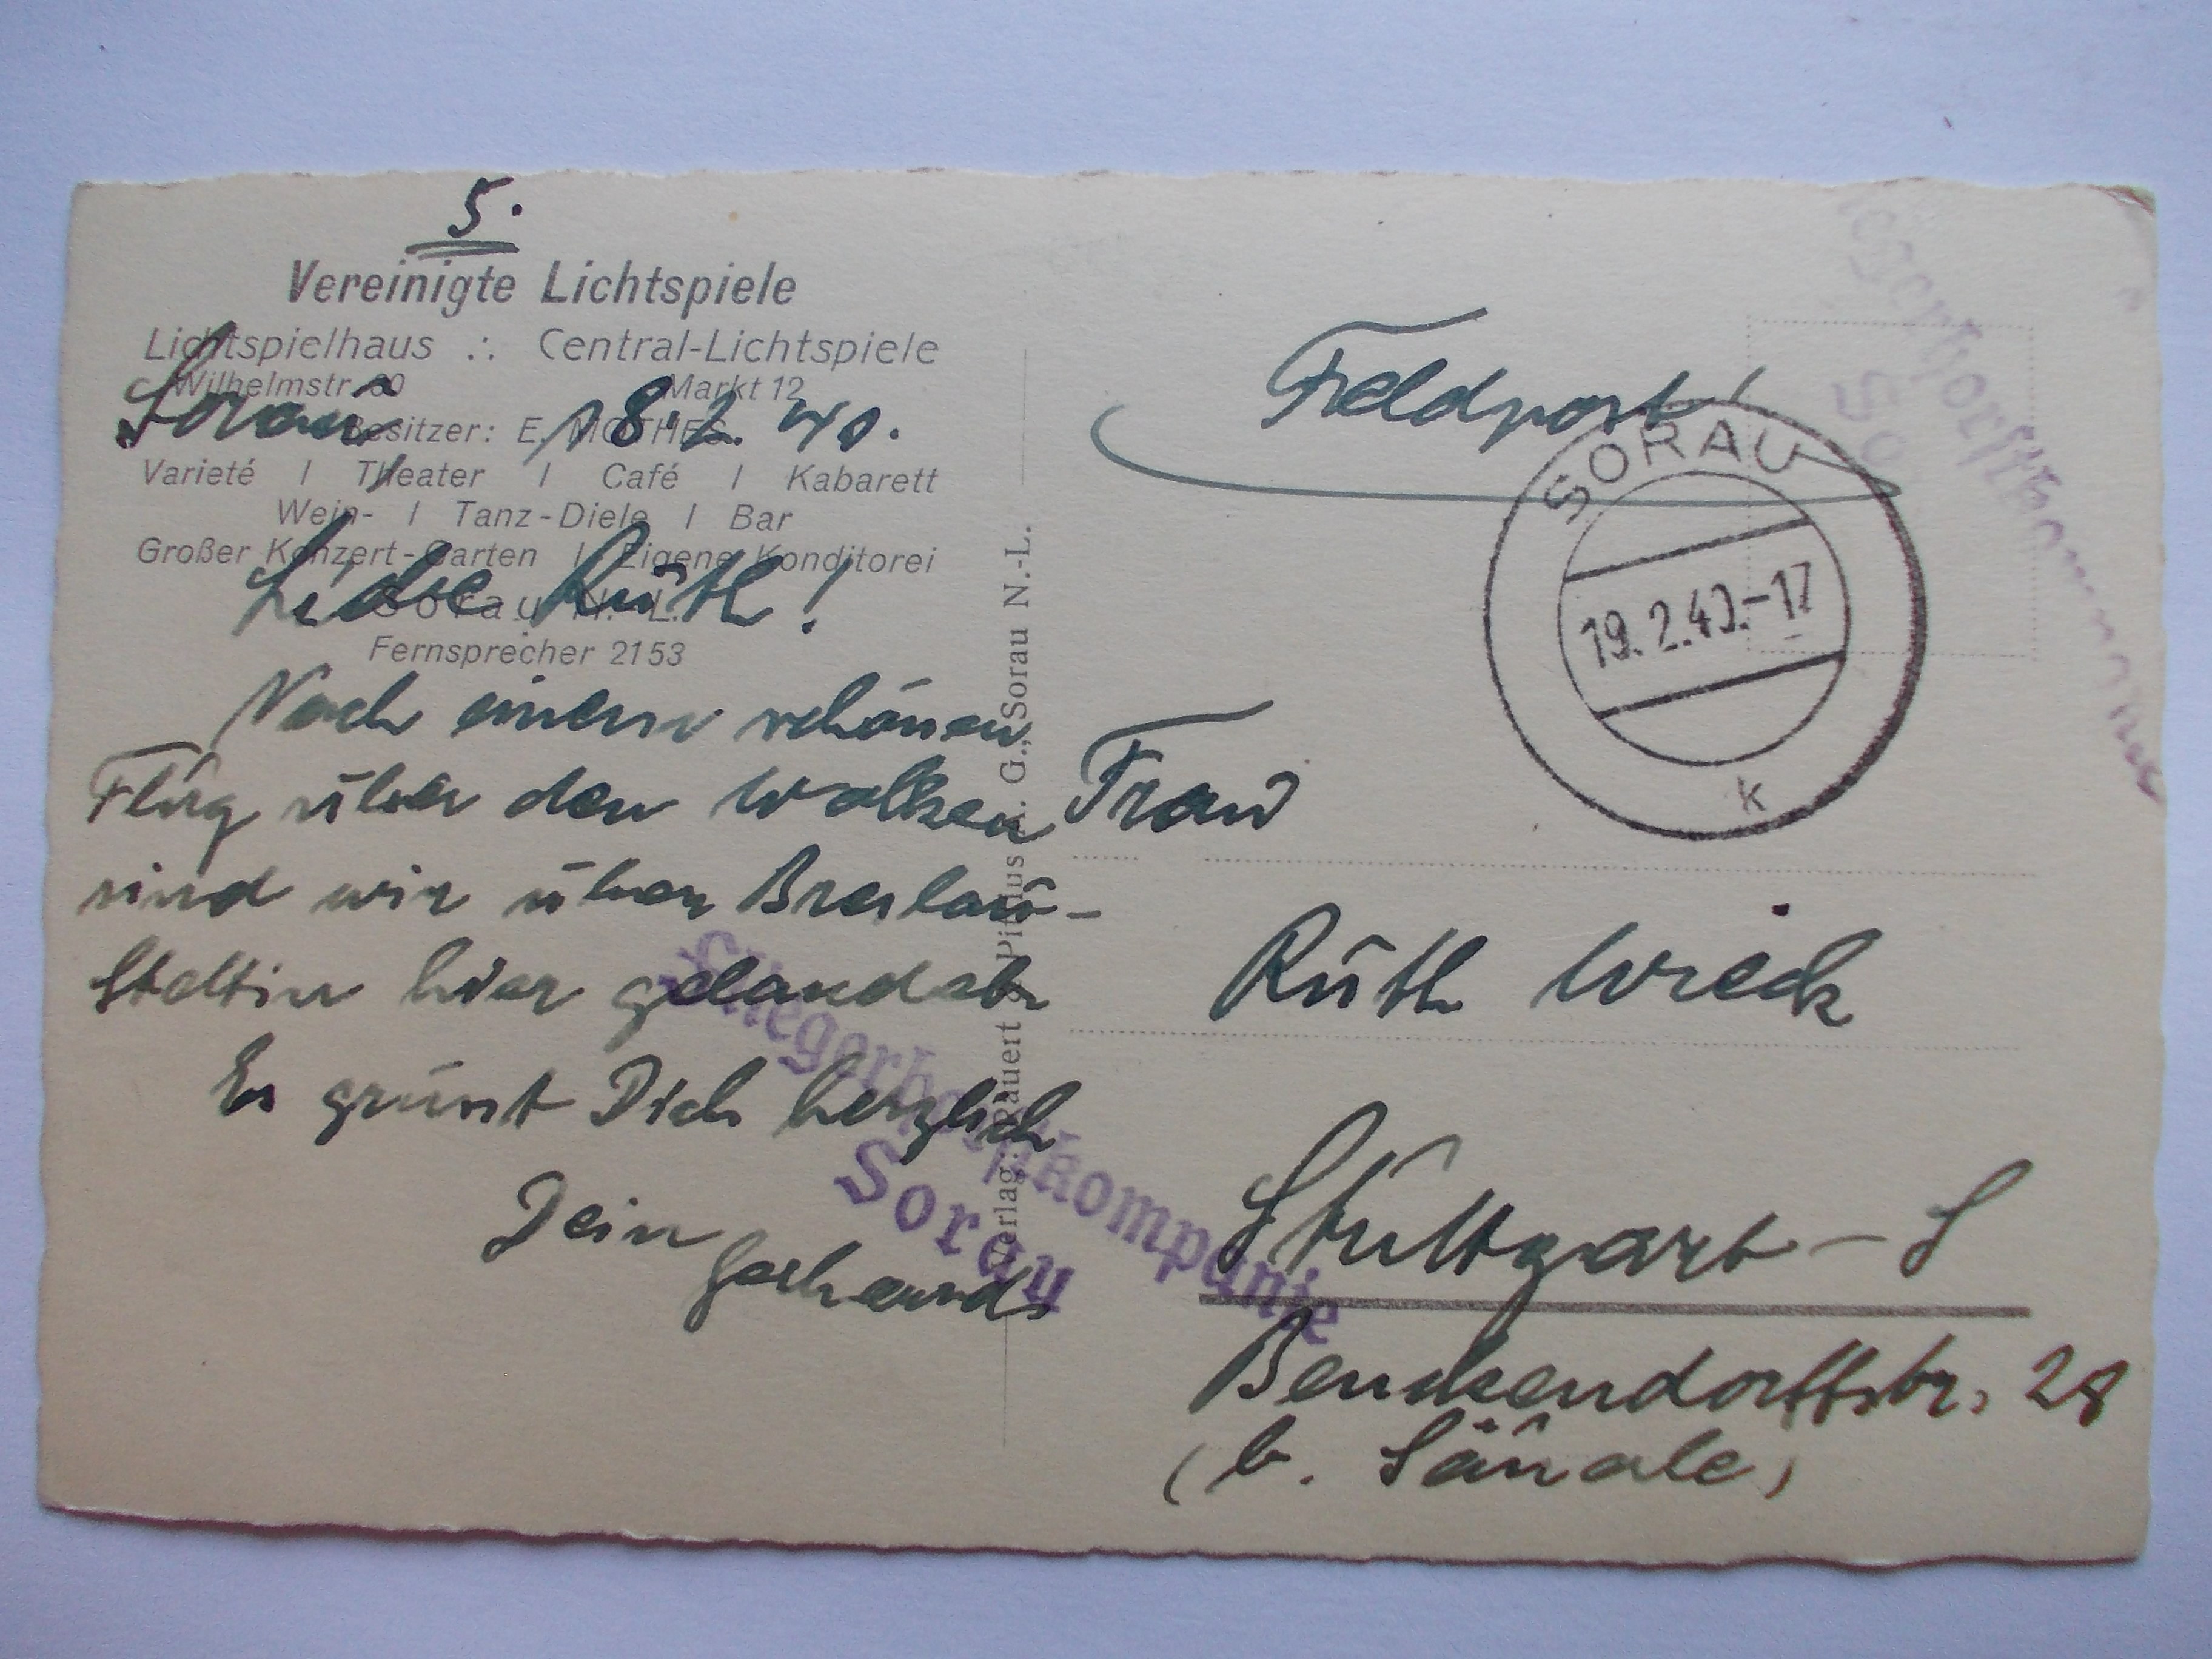 5.
Vereinigte Lichtspiele
Lichtspielhaus ∴ Central-Lichtspiele
Wilhelmstr. 30 Markt 12
Besitzer: E. MOTHES
Varieté / Theater / Café / Kabarett
Wein- / Tanz-Diele / Bar
Großer Konzert-Garten / Eigene Konditorei
Sorau N.-L.
Fernsprecher 2153
Sorau, 18.2.40.
Liebe Ruth!
Nach einem schönen
Flug über den Wolken
sind wir über Breslau-
Stettin hier gelandet.
Es grüsst Dich herzlich
Dein
Gerhard
Verlag: Rauert & Pittius A. G., Sorau N.-L.
Fliegerhorstkompanie
Sorau
Feldpost!
SORAU
19.2.40.-17
k
Fliegerhorstkompanie
So
Frau
Ruth Wieck
Stuttgart-S
Benckendorffstr. 28
(b. Säuale)